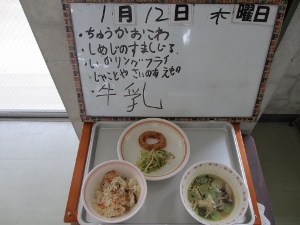 1月12日 木曜日
・ちゅうかおこわ
・しめじのすましじる
・いかリングフライ
・じゃことやさいのあえもの
・牛乳